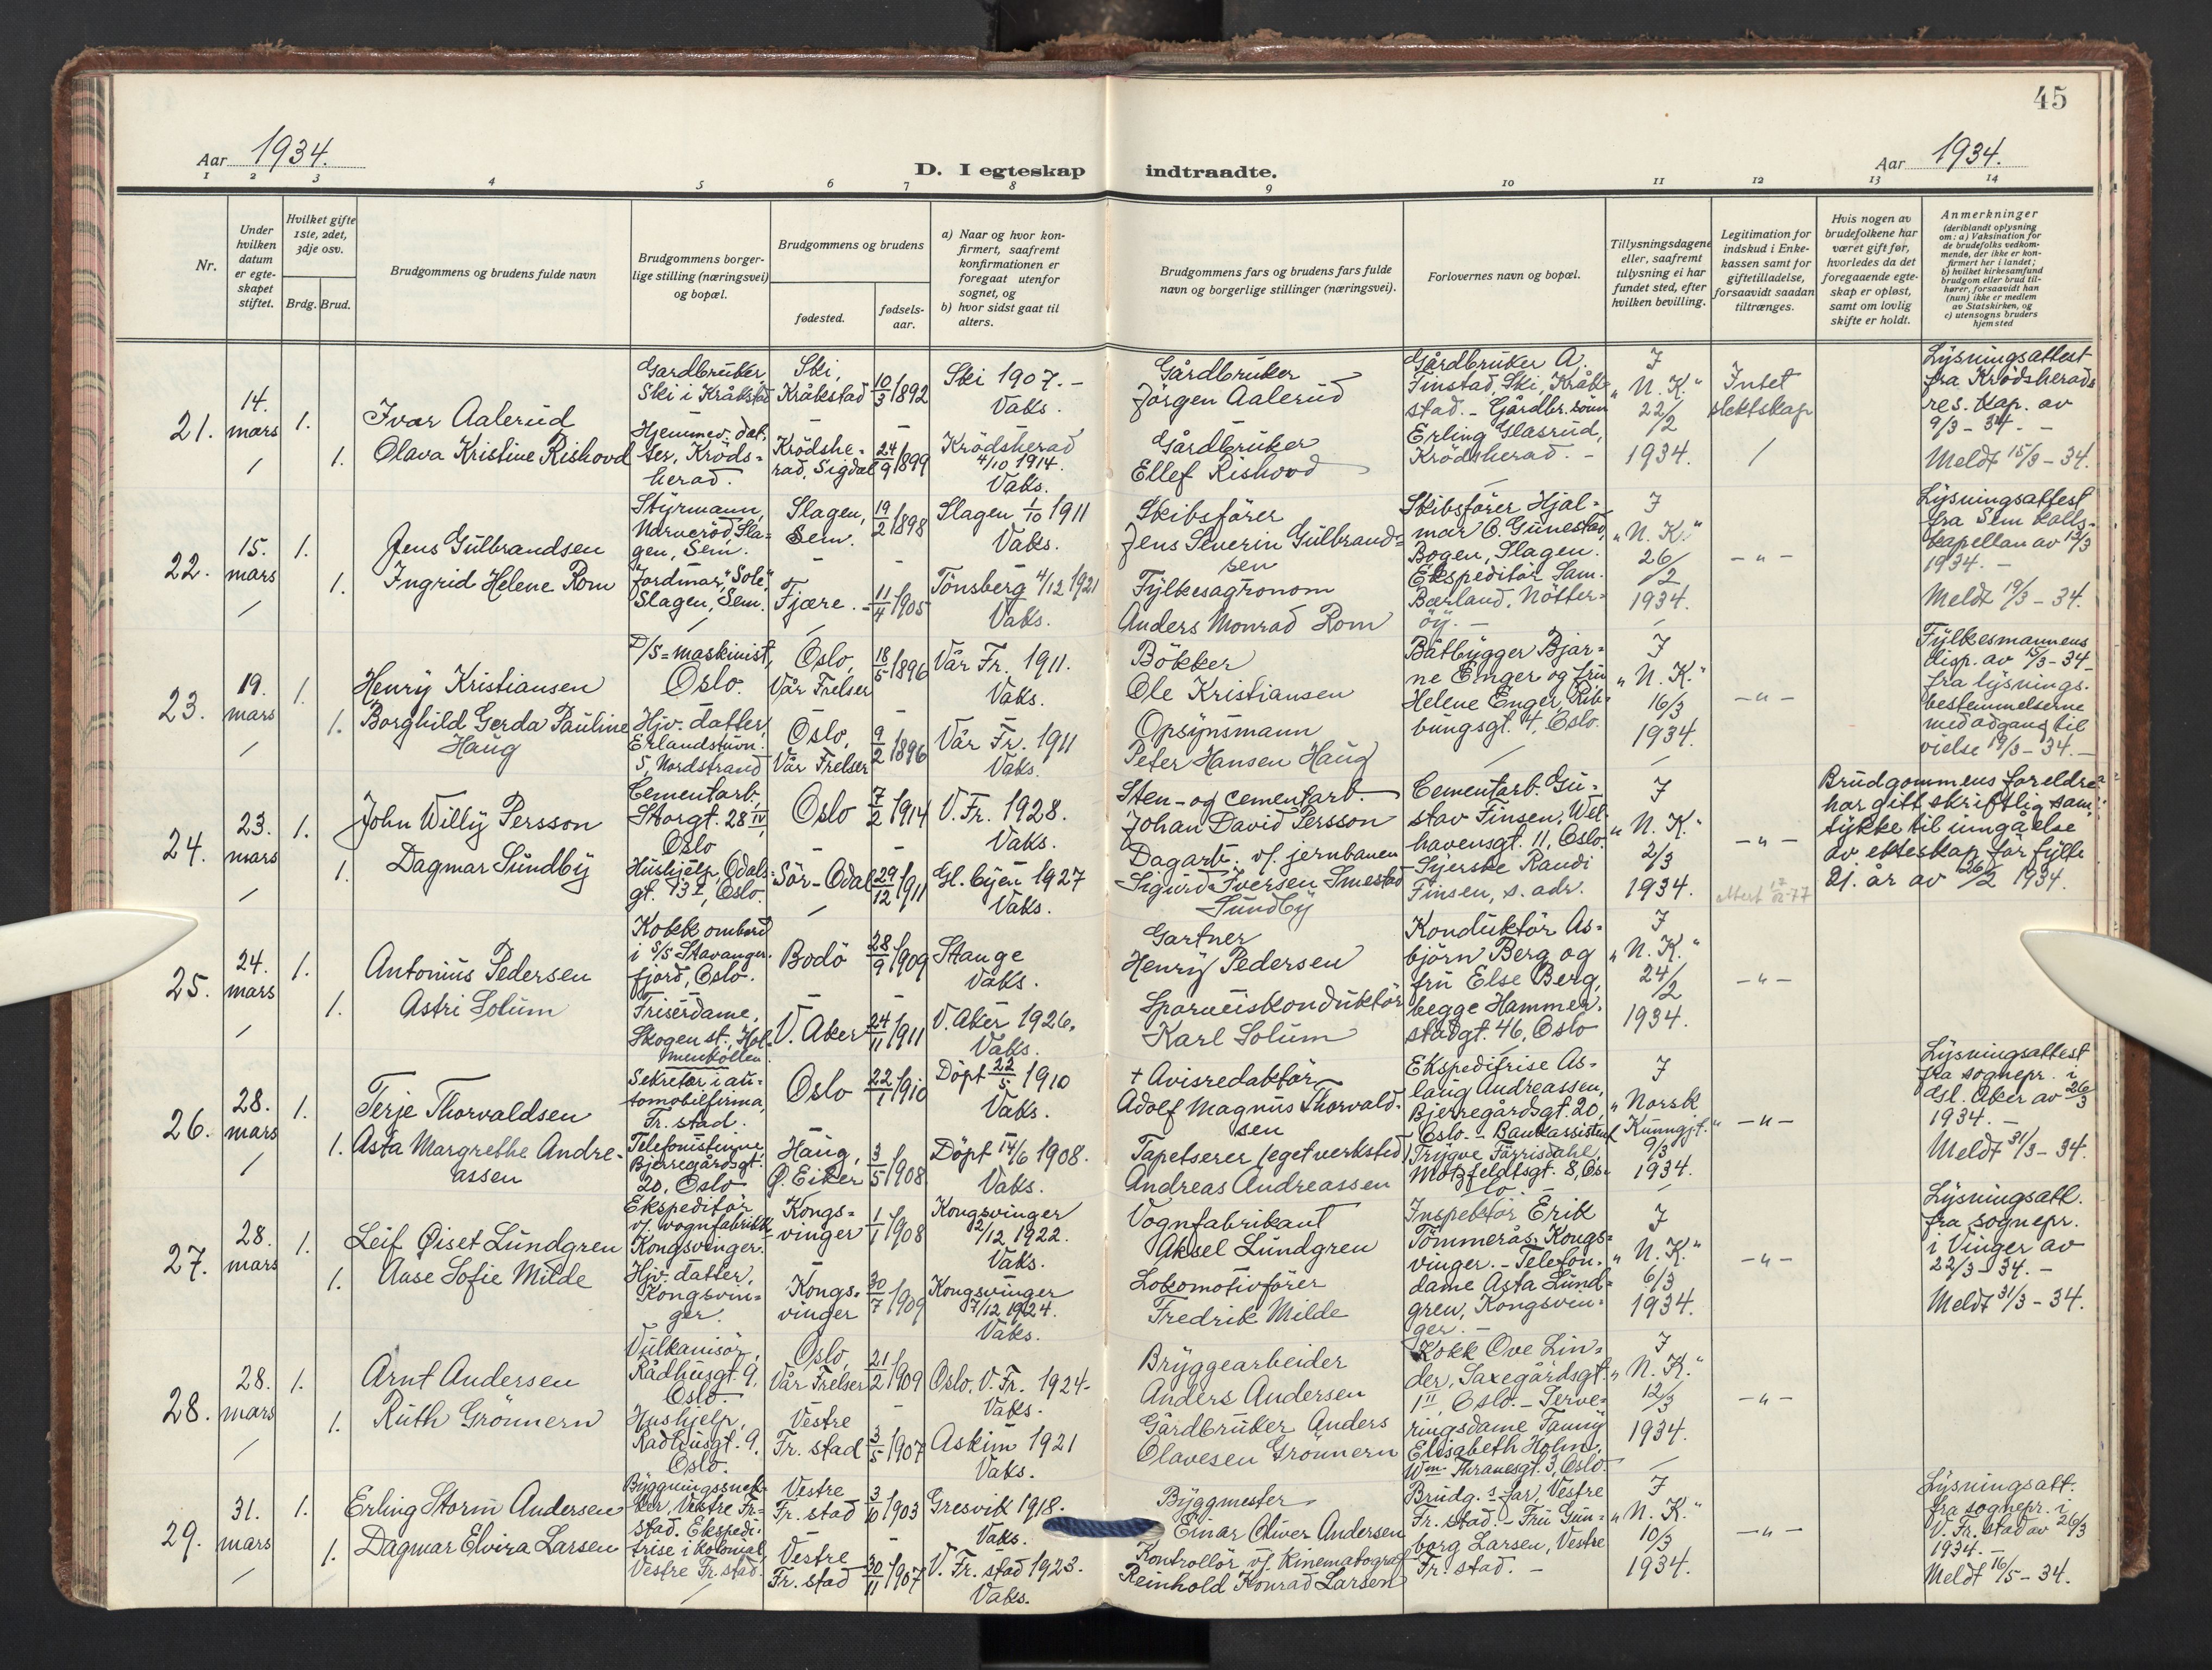 45
Aar 1934.
D. I egteskap indtraadte.
Aar 1934.
1 2 3 4 5 6 7 8 9 10 11 12 13 14
Nr.
Under hvilken datum er egteskapet stiftet.
Hvilket gifte 1ste, 2det, 3dje osv.
Brdg. Brud.
Brudgommens og brudens fulde navn
Brudgommens borgerlige stilling (næringsvei) og bopæl.
Brudgommens og brudens
fødested.
fødselsaar.
a) Naar og hvor konfirmert, saafremt konfirmationen er foregaat utenfor sognet, og
b) hvor sidst gaat til alters.
Brudgommens fars og brudens fars fulde navn og borgerlige stillinger (næringsvei).
Forlovernes navn og bopæl.
Tillysningsdagene eller, saafremt tillysning ei har fundet sted, efter hvilken bevilling.
Legitimation for indskud i Enkekassen samt for giftetilladelse, forsaavidt saadan tiltrænges.
Hvis nogen av brudefolkene har været gift før, hvorledes da det foregaaende egteskap er opløst, samt om lovlig skifte er holdt.
Anmerkninger (deriblandt oplysning om: a) Vaksination for de brudefolks vedkommende, der ikke er konfirmert her i landet; b) hvilket kirkesamfund brudgom eller brud tilhører, forsaavidt han (hun) ikke er medlem av Statskirken, og c) utensogns bruders hjemsted
21. 14. mars 1. 1.
Ivar Aalerud
Olava Kristine Rishovd
Gardbruker, Ski i Kråkstad
Hjemmev. datter, Krødsherad.
Ski, Kråkstad 10/3 1892
Krödsherad, Sigdal 24/9 1899
Ski 1907. - Vaks.
Krödsherad 4/10 1914. Vaks.
Gårdbruker Jörgen Aalerud
Gårdbruker Ellef Rishovd
Gårdbruker A. Finstad, Ski, Kråkstad. - Gårdbr.sönn Erling Glasrud, Krödsherad. -
I "N. K." 22/2 1934.
Intet slektskap
Lysningsattest fra Krødsherads res. kap. av 9/3 - 34. -
Meldt 15/3 - 34.
22. 15. mars 1. 1.
Jens Gulbrandsen
Ingrid Helene Rom
Styrmann, Narveröd, Slagen, Sem.
Jordmor, "Sole", Slagen, Sem.
Slagen, Sem. 19/2 1898
Fjære. - 11/4 1905
Slagen 1/10 1911 Vaks.
Tönsberg 4/12 1921 Vaks.
Skibsförer Jens Severin Gulbrandsen
Fylkesagronom Anders Monrad Rom
Skibsförer Hjalmar C. Gunestad, Bogen, Slagen. Ekspeditör Sam. Bærland, Nötteröy. -
I "N. K." 26/2 1934.
- " -
Lysningsattest fra Sem kallskapellan av 12/3 1934. -
Meldt 19/3 - 34.
23. 19. mars 1. 1.
Henry Kristiansen
Borghild Gerda Pauline Haug
D/S = maskinist, Oslo.
Hjv. datter, Erlandstuvn. 5, Nordstrand
Oslo, Vår Frelser 18/5 1896
Oslo, Vår Frelser 9/2 1896
Vår Fr. 1911. Vaks.
Vår Fr. 1911 Vaks.
Bökker Ole Kristiansen
Opsynsmann Peter Hansen Haug
Båtbygger Bjarne Enger og fru Helene Enger, Ribbungsgt. 4, Oslo.
I "N. K." 16/3 1934.
- " -
Fylkesmannens disp. av 15/3 - 34 fra lysningsbestemmelserne med adgang til vielse 19/3 - 34. -
24. 23. mars 1. 1.
John Willy Persson
Dagmar Sundby
Cementarb. Storgt. 28 IV, Oslo
Hushjelp, Odalsgt. 13 I, Oslo.
Oslo 7/2 1914
Sör-Odal 29/12 1911
V. Fr. 1928. Vaks.
Gl. byen 1927 Vaks.
Sten- og cementarb. Johan David Persson
Dagarb. v/ jernbanen Sigurd Iversen Smestad Sundby
Cementarb. Gustav Finsen, Welhavensgt. 11, Oslo. - Syerske Randi Finsen, s. adr.
I "N. K." 2/3 1934.
- " -
Brudgommens foreldre har gitt skriftlig samtykke til inngåelse av ekteskap før fylte 21. år av 26/2 1934.
25. 24. mars 1. 1.
Antonius Pedersen
Astri Solum
Kokk ombord i S/S Stavangerfjord, Oslo.
Frisérdame, Skogen st., Holmenkollen.
Bodö 28/9 1909
V. Aker 24/11 1911
Stange Vaks.
V. Aker 1926. Vaks.
Gartner Henry Pedersen
Sporveiskonduktör Karl Solum
Konduktör Asbjörn Berg og fru Else Berg, begge Hammerstadgt. 46, Oslo
I "N. K." 24/2 1934.
- " -
26. 28. mars 1. 1.
Terje Thorvaldsen
Asta Margrethe Andreassen
Sekretær i automobilfirma, Fr. stad.
Telefonistinne, Bjerregårdsgt. 20, Oslo
Oslo 22/1 1910
Haug, Ø. Eiker 3/5 1908
Döpt 22/5 1910 Vaks.
Döpt 14/6 1908. Vaks.
+ Avisredaktör Adolf Magnus Thorvaldsen
Tapetserer (eget verksted) Andreas Andreassen
Ekspeditrise Aslaug Andreassen, Bjerregårdsgt. 20, Oslo. - Bankassistent Trygve Farrisdahl, Motzfeldtsgt. 8, Oslo.
I "Norsk Kunngjt." 9/3 1934.
- " -
Lysningsattest fra sognepr. i Østl. Aker av 26/3 1934. -
Meldt 31/3 - 34.
27. 28. mars 1. 1.
Leif Øiset Lundgren
Aase Sofie Milde
Ekspeditör v/ vognfabrikk Kongsvinger.
Hjv. datter, Kongsvinger.
Kongsvinger 1/1 1908
Kongsvinger 30/7 1909
Kongsvinger 2/12 1922. Vaks.
Kongsvinger 7/12 1924. Vaks.
Vognfabrikant Aksel Lundgren
Lokomotivförer Fredrik Milde
Inspektör Erik Tömmerås, Kongsvinger. - Telefondame Asta Lundgren, Kongsvinger. -
I "N. K." 6/3 1934.
- " -
Lysningsatt. fra sognepr. i Vinger av 22/3 - 34. -
Meldt 31/3 - 34.
28. 28. mars 1. 1.
Arnt Andersen
Ruth Grönnern
Vulkanisör, Rådhusgt. 9, Oslo.
Hushjelp, Rådhusgt. 9. Oslo.
Oslo, Vår Frelser 21/2 1909
Vestre Fr. stad 3/5 1907
Oslo, V. Fr. 1924. Vaks.
Askim 1921 Vaks.
Bryggearbeider Anders Andersen
Gårdbruker Anders Olavesen Grönnern
Kokk Ove Linder, Saxegårdsgt. 1 II, Oslo. - Serveringsdame Fanny Elisabeth Holm, Wm. Thranesgt. 3, Oslo.
I "N. K." 12/3 1934.
- " -
29. 31. mars 1. 1.
Erling Storm Andersen
Dagmar Elvira Larsen
Bygningssnekker, Vestre Fr.stad.
Ekspeditrise i kolonial, Vestre Fr. stad.
Vestre Fr. stad 3/10 1903
Vestre Fr. stad 30/11 1907
Gresvik 1918. Vaks.
V. Fr. stad 1923. Vaks.
Byggmester Einar Oliver Andersen
Kontrollör v/ Kinematograf Reinhold Konrad Larsen
Brudg.s far, Vestre Fr. stad. - Fru Gunborg Larsen, Vestre Fr. stad. -
I "N. K." 10/3 1934.
- " -
Lysningsatt. fra sognepr. i V. Fr. stad av 26/3 1934. -
Meldt 16/5 - 34.